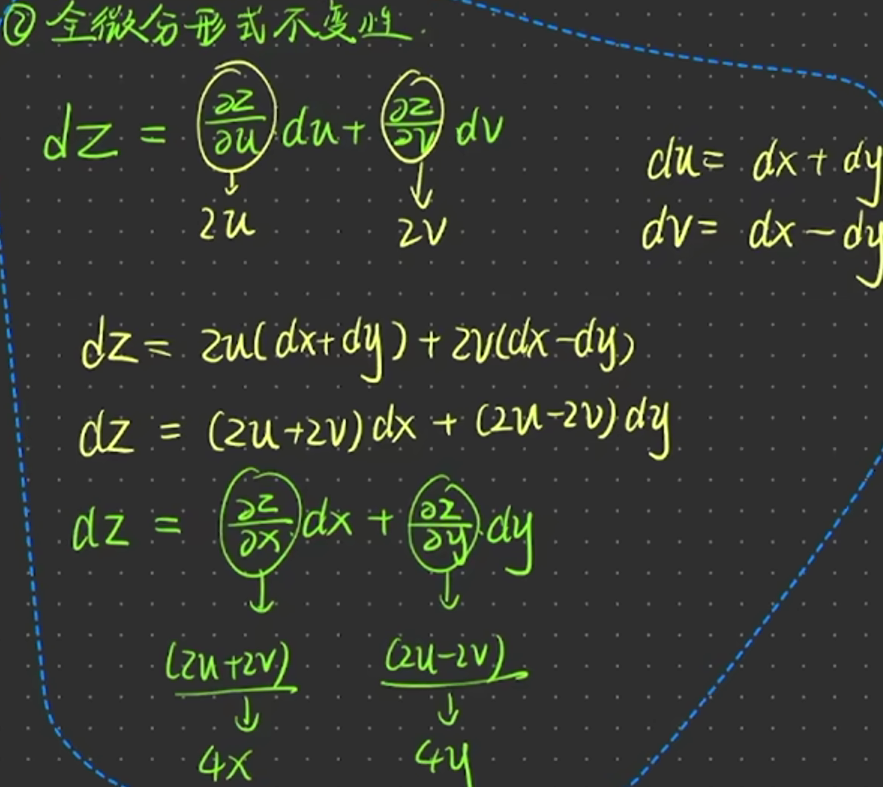 ② 全微分形式不变性
dz = ∂z/∂u du + ∂z/∂v dv
↓ ↓
2u 2v
du = dx + dy
dv = dx − dy
dz = 2u(dx+dy) + 2v(dx−dy)
dz = (2u+2v)dx + (2u−2v)dy
dz = ∂z/∂x dx + ∂z/∂y dy
↓ ↓
(2u+2v) (2u−2v)
↓ ↓
4x 4y